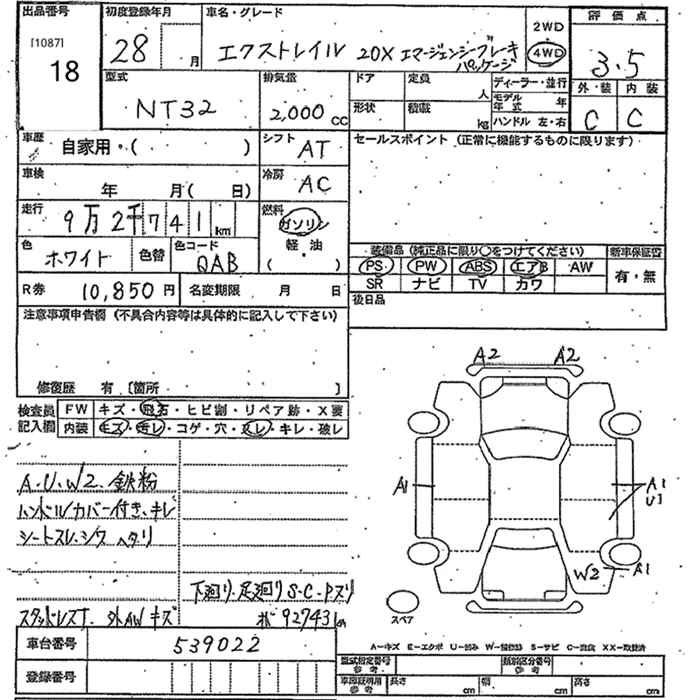 出品番号 初度登録年月 車名・グレード 2WD 評価点
[1087] 18 28 月 エクストレイル 20X エマージェンシーブレーキ パッケージ 4WD 3.5
型式 排気量 ドア 定員 人 ディーラー・並行 外・装 内装
NT32 2,000 cc 形状 積載 kg モデル年式 年 C C
ハンドル 左・右
車歴 自家用・( ) シフト AT セールスポイント (正常に機能するものに限ります)
車検 年 月( 日) 冷房 AC
走行 9万2千741km 燃料 ガソリン
色 ホワイト 色替 色コード QAB 軽・油 ( )
装備品 (純正品に限り○をつけてください) 新車保証書
PS PW ABS エアB AW 有・無
SR ナビ TV カワ
R券 10,850円 名変期限 月 日 後日品
注意事項申告欄 (不具合内容等は具体的に記入して下さい)
修復歴 有 [箇所 ]
検査員 FW キズ・飛石・ヒビ割・リペア跡・X要
記入欄 内装 キズ・キレ・コゲ・穴・スレ・キレ・破レ
A2 A2
A1 A1
U1
W2 A1
スペア
A.U.W2.鉄粉
ハンドルカバー付き、キレ
シートスレ.シワ ヘタリ
下廻り.足廻りS-C-Pズリ
スタッドレス 外AWキズ 92743
車台番号 539022
登録番号
A－キズ E－エクボ U－凹み S－サビ C－腐食 XX－取替済
型式指定番号 参考 類別区分番号 参考
車庫証明用 参考 長さ 幅 高さ